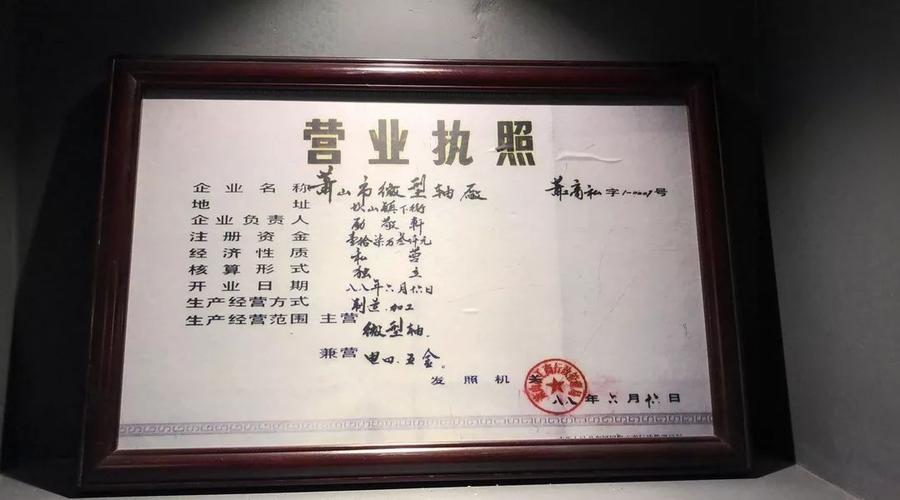 营业执照
企业名称 萧山市微型轴厂 萧商私字1-0209号
地址 坎山镇下街
企业负责人 励敬轩
注册资金 壹拾柒万叁仟元
经济性质 私营
核算形式 独立
开业日期 八八年六月十六日
生产经营方式 制造.加工
生产经营范围 主营 微型轴.
兼营 电四、五金。
发照机
八八年六月十六日